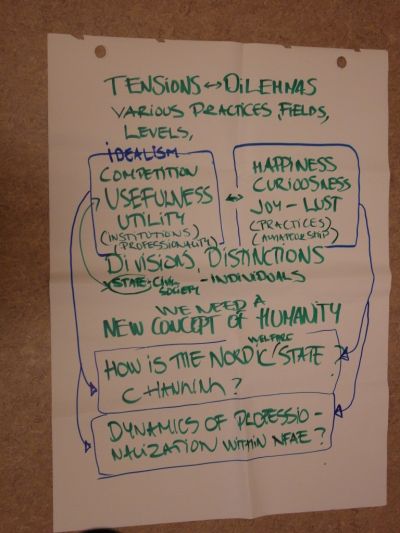 TENSIONS ↔ DILEMNAS
VARIOUS PRACTICES, FIELDS,
LEVELS,
IDEALISM
COMPETITION
USEFULNESS
UTILITY
(INSTITUTIONS)
(PROFESSIONALITY)
↔
HAPPINESS
CURIOUSNESS
JOY - LUST
(PRACTICES)
(AMATEURSHIP)
DIVISIONS, DISTINCTIONS
STATE - CIVIL SOCIETY - INDIVIDUALS
WE NEED A
NEW CONCEPT OF HUMANITY
WELFARE
HOW IS THE NORDIC STATE
CHANNING?
DYNAMICS OF PROFESSIO-
NALIZATION WITHIN NFAE?